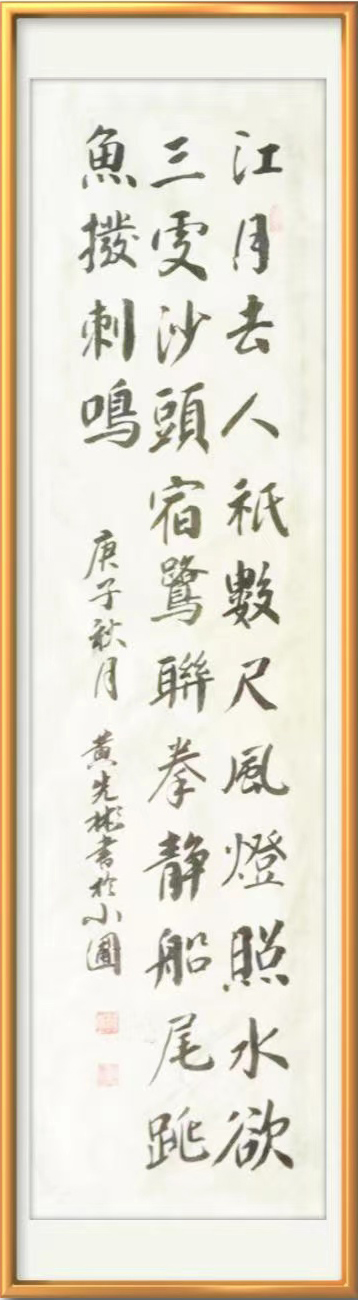 江月去人祇數尺風燈照水欲
三更沙頭宿鷺聯拳靜船尾跳
魚撥刺鳴
庚子秋月 黃先彬書於小圃